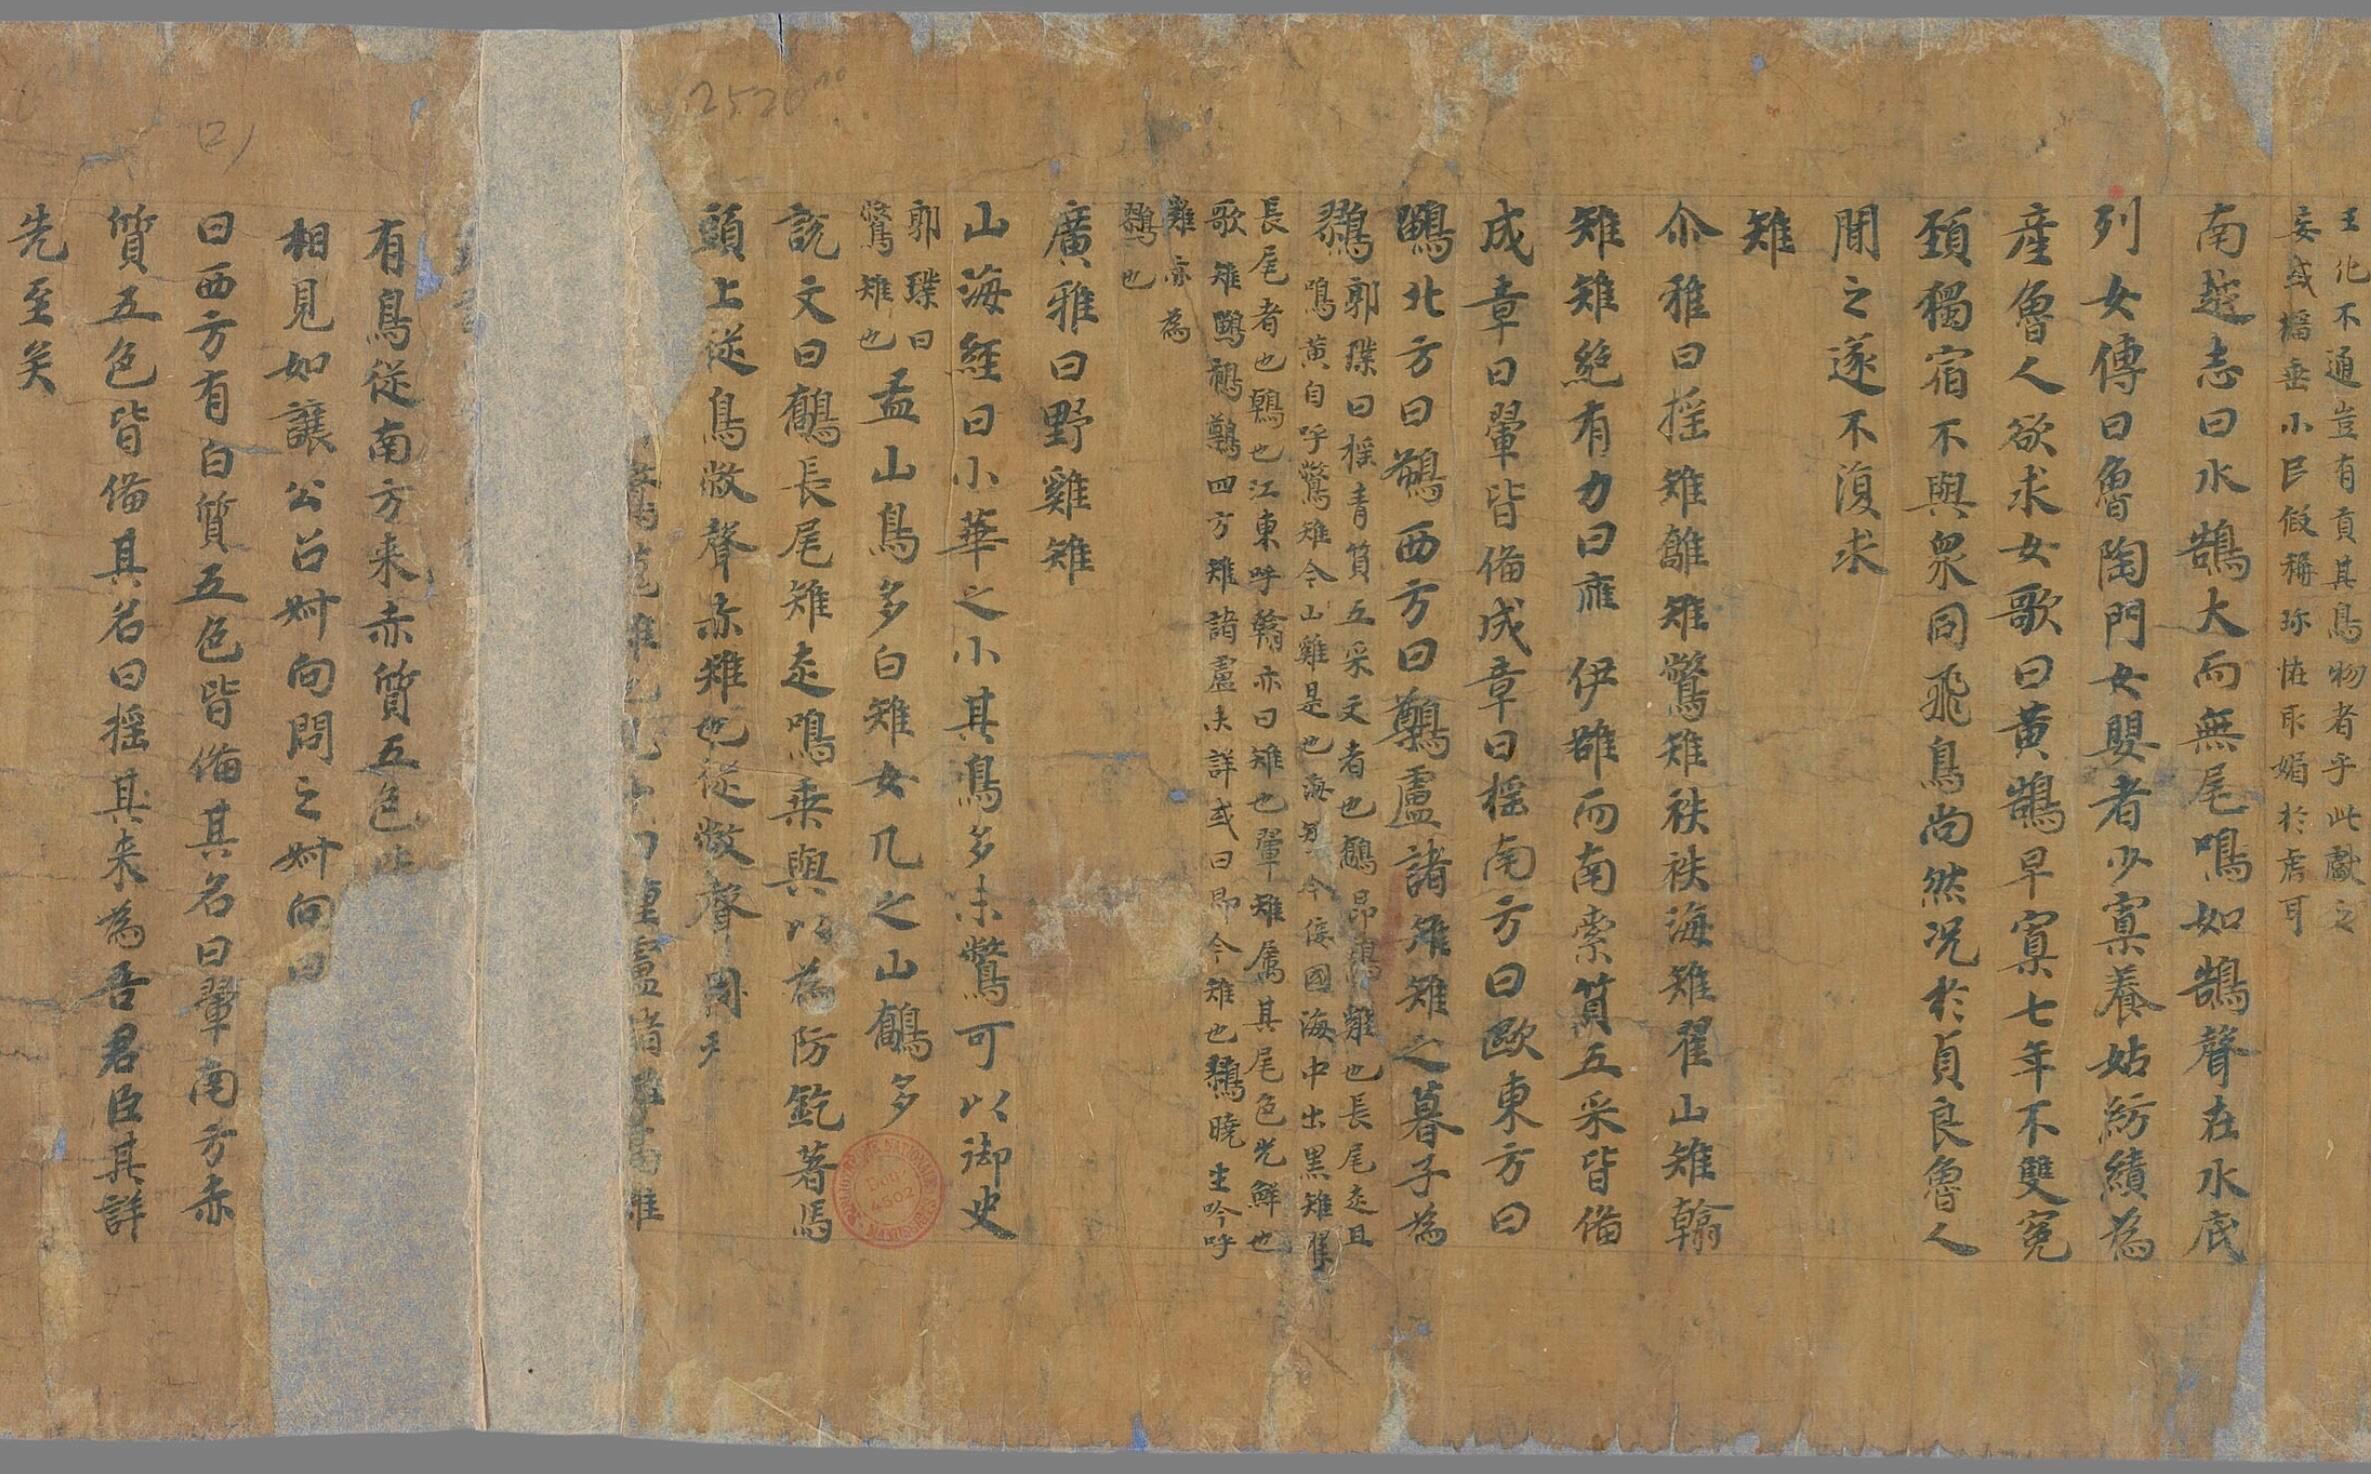 王化不通豈有貢其鳥物者乎此獻之
妄或攉垂小民假稱珎恠取媚於君可
南越志曰水鵠大而無尾鳴如鵠聲在水底
列女傳曰魯陶門女嬰者少寡養姑紡績為
産魯人欲求女歌曰黄鵠早寡七年不雙宛
頸獨宿不與衆同飛鳥尚然况於貞良魯人
聞之遂不復求
雉
尒雅曰揺雉鷂雉鷩雉袟袟海雉翟山雉鶾
雉雉絶有力曰 伊雒而南素質五采皆備
成章曰翬皆備成章曰揺南方曰 東方曰
鶅北方曰鵗西方曰鷷盧諸雉雉之暮子為
鷚郭璞曰揺青質五采文者也 長尾走且
鳴黄自呼鷩雉今山雞是也海雉今倭國海中出黑雉翟
長尾者也鶾也江東呼鶾亦曰雉也翬雉属其尾色光鮮也
歌雉鶅鵗鷷四方雉諸盧未詳或曰即今雉也鷚曉生吟呼
雞亦為
鷚也
廣雅曰野雞雉
山海經曰小華之小其鳥多赤鷩可以御火
郭璞曰
鷩雉也
孟山鳥多白雉女几之山鷮多
説文曰鷮長尾雉走鳴乗輿以為防釳著馬
頭上從鳥敫聲赤雉也從敫聲周
有鳥從南方来赤質五色皆
相見如讓公召叔向問之叔向曰
曰西方有白質五色皆備其名曰翬南方赤
質五色皆備其名曰揺其来為吾君臣其詳
先至矣
2520
(2)